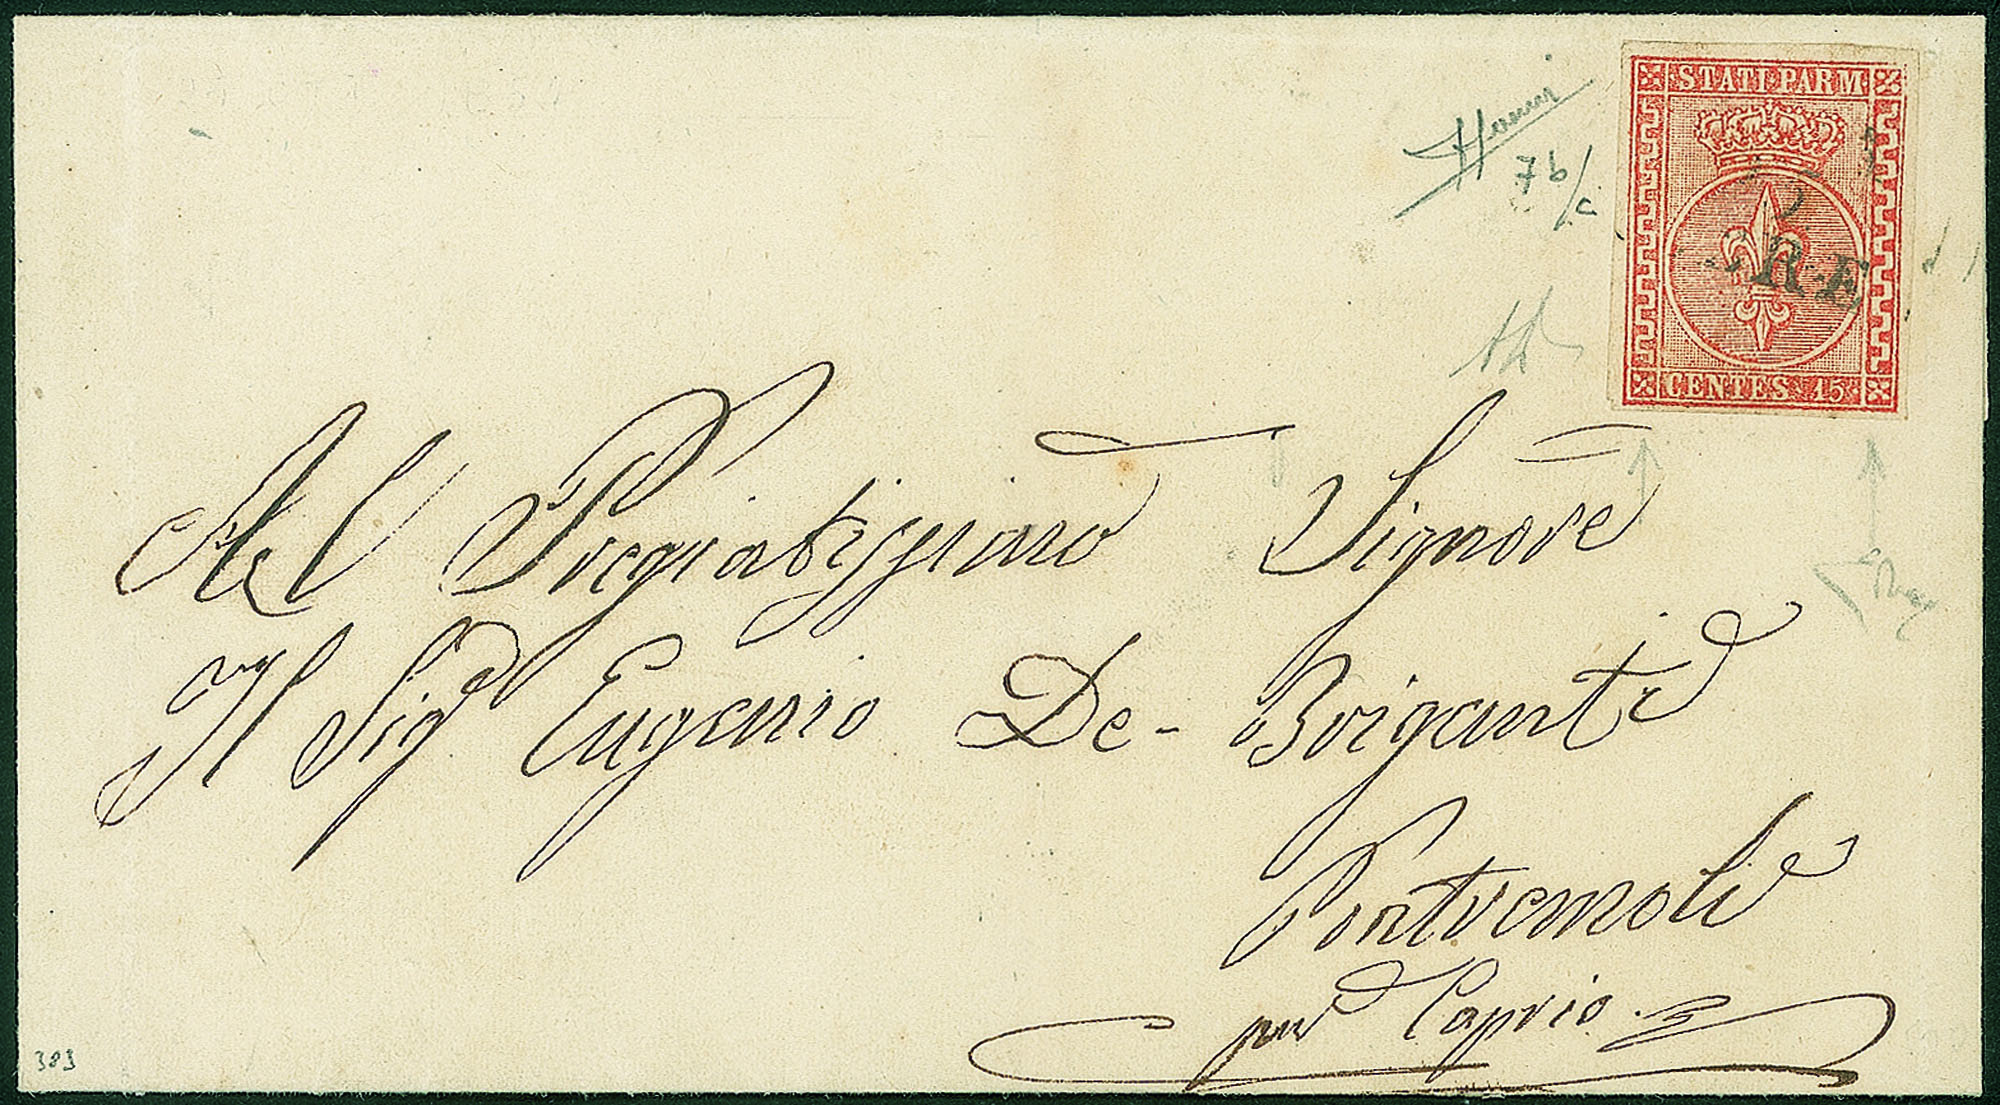 STATI PARM
7b/c
RE
CENTES. 15
Al Pregiatissimo Signore
Il Sigr Eugenio De-Briganti
Pontremoli
per Caprio.
383